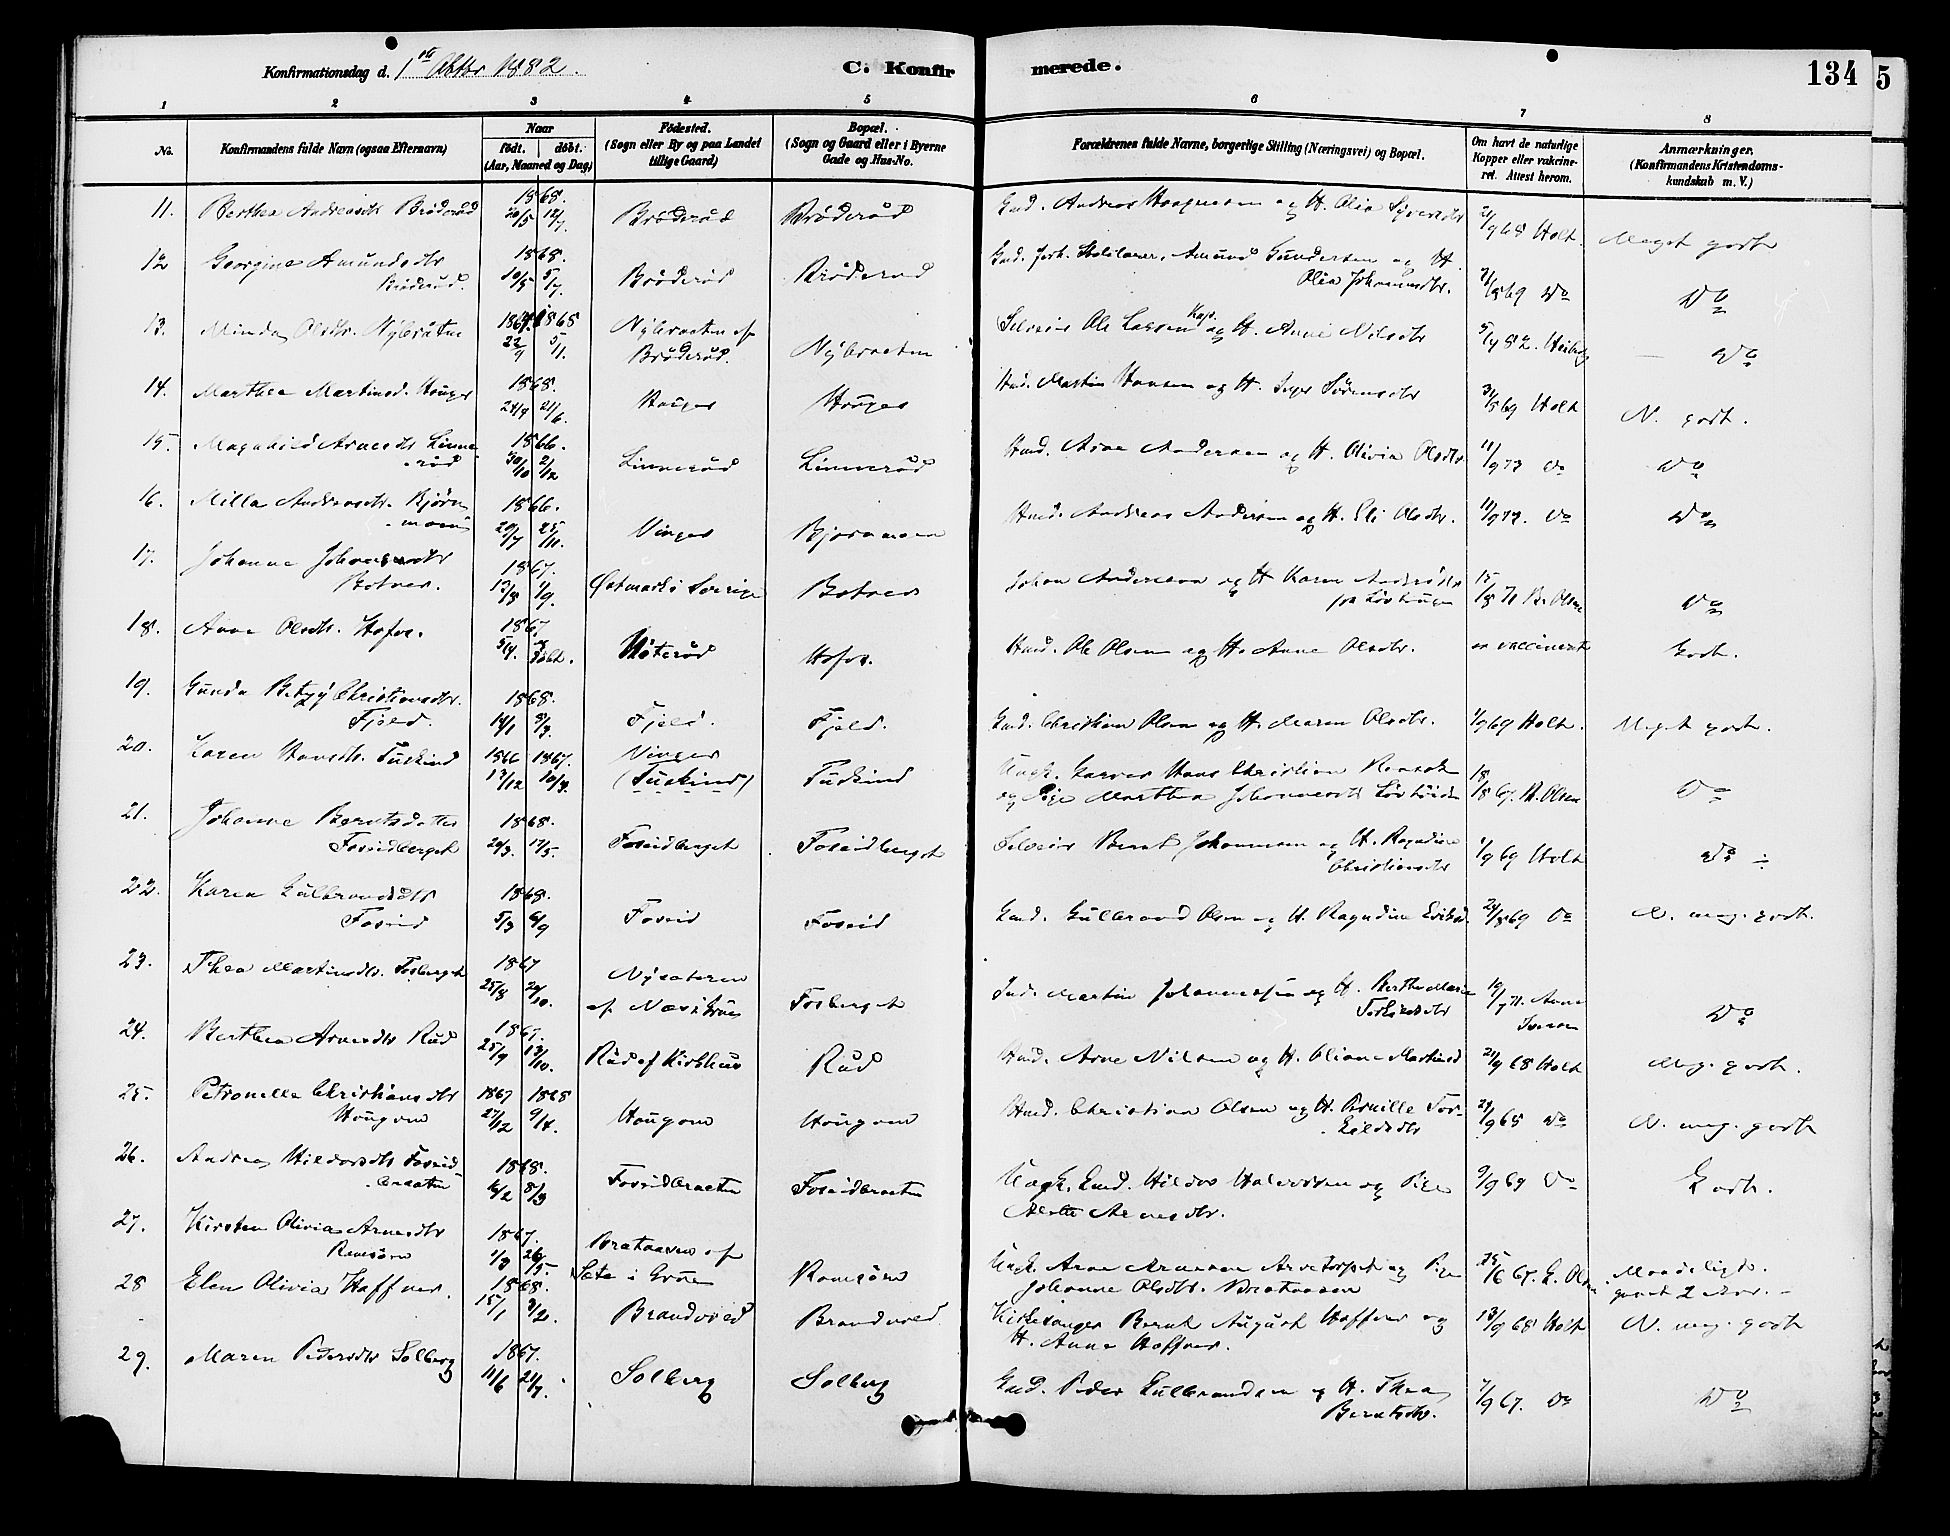 Konfirmationsdag d. 1ste Oktbr 1882.
C. Konfirmerede.
134
5
1 2 3 4 5 6 7 8
No.
Konfirmandens fulde Navn (ogsaa Efternavn)
Naar
födt. döbt.
(Aar, Maaned og Dag)
Födested.
(Sogn eller By og paa Landet
tillige Gaard)
Bopæl.
(Sogn og Gaard eller i Byerne
Gade og Hus-No.
Forældrenes fulde Navne, borgerlige Stilling (Næringsvei) og Bopæl.
Om havt de naturlige
Kopper eller vakcine-
ret. Attest herom.
Anmærkninger.
(Konfirmandens Kristendoms-
kundskab m. V.)
11. Berthea Andreasdtr Bröderöd 1868. 20/5 12/7. Bröderöd Bröderöd Gmd. Andreas Haagensen og H. Olia Syversdtr 21/9 68 Holt. Meget godt
12 Georgine Amundsdtr
Bröderud. 1868. 10/5 5/7. Bröderöd Bröderud Gmd. Amund Gundersen og H.
Olia Johannesdtr. 31/8 69 Do Do
13. Minda Olsdtr. Nybråtne 1864 1865 22/9 5/1. Nybraaten af
Bröderöd. Nybraaten Selveier Ole Larsen og H. Anne Nilsdtr 5/4 82. Do
14. Marthea Martinsd. Houger 1868. 24/4 21/6. Houger Houger Hmd. Martin Hansen og H. Inger Sörensdtr 31/8 69 Holt N. godt.
15. Magnhild Arnesdtr Linne-
röd 1866. 30/10 2/12 Linneröd Linneröd Hmd. Arne Andersen og H. Olivia Olsdtr 11/9 73 Do Do
16. Milla Andreasdtr. Björn-
moen 1866. 20/7 25/11. Vinger Bjornmoen Hmd. Andreas Andersen og H. Eli Olsdtr. 11/9 73. Do Do
17. Johanne Johansdtr
Botner. 1867. 13/8 1/9. Östmark i Sverige Botner Johan Andersson og H Karen Andersdtr 15/8 71 B. Olsen Do
18. Anne Olsdtr. Hofos. 1867 5/4. döbt. Höteröd Hofos. Hmd. Ole Olsen og H. Anne Olsdtr. er vaccineret Godt.
19. Gunda Betzy Christiansdtr.
Fjeld. 1868. 14/1 8/3. Fjeld. Fjeld. Gmd. Christian Olsen og H. Maren Olsdtr. 1/9 69 Holt. Meget godt.
20. Karen Hansdtr. Tuskind 1866 1867. 17/12 10/4. Vinger
(Tuskind) Tuskind Ungk. Hans Christian
og Pige Marthea Johannesdtr 18/8 67. H. Olsen Do
21. Johanne Berntsdatter
Fosseidberget 1868. 20/3. 17/5. Fosseidberget Fosseidberget Selveier Bernt Johannesen og H. Ragndine
Christiansdtr 1/9 69 Holt Do
22. Karen Gulbrandsdtr
Fosseid 1868. 5/3 6/9 Fosseid Fosseid Gmd. Gulbrand Olsen og H. Ragndine Eriksd. 24/8 69 Do N. meg. godt.
23. Thea Martinsdtr. Fosberget 1867 25/8 20/10. Nysæteren
af Næs i Grue Fosberget Ind. Martin Johannessen og H. Berthe Marie
Torkildsdtr 19/7 71. Anne
Iversen Do
24. Berthea Arnesdtr Rud 1867. 25/9 13/10. Rud af Kirkhus Rud Hmd. Arne Nilsen og H. Oliane Martinsd 21/9 68 Holt Meg. godt.
25. Petronelle Christiansdtr
Hougom 1867 1868 27/12 9/4. Hougom Hougom Hmd. Christian Olsen og H. Pernille Tor-
kildsdtr 29/9 68 Do N. meg. godt
26. Andrea Hildorsdtr Fosseid-
braaten 1868. 16/2 8/3 Fosseidbraaten Fosseidbraaten Ungk. Gmd. Hildor Halvorsen og Pige
Alette Arnesdtr. 9/9 69 Do Godt.
27. Kirsten Olivia Arnesdtr
1867. 1/3 26/5. Brataasen af
Sæte i Grue Ungk. Arne Arnesen Arnetorpet og Pige
Johanne Olsdtr. Brataasen 25/6 67. E. Olsen Maadeligt.
gaaet 2 Aar.
28 Elen Olivia Haffner. 1868. 15/1 3/2. Brandvold Brandvold. Kirkesanger Bernt August Haffner og
H. Anne Haffner. 13/9 68 Holt N. meg. godt
29. Maren Pedersdtr Solberg 1867. 11/6 21/7. Solberg Solberg Gmd. Peder Gulbrandsen og H. Thea
Berntsdtr. 7/9 67. Do Do